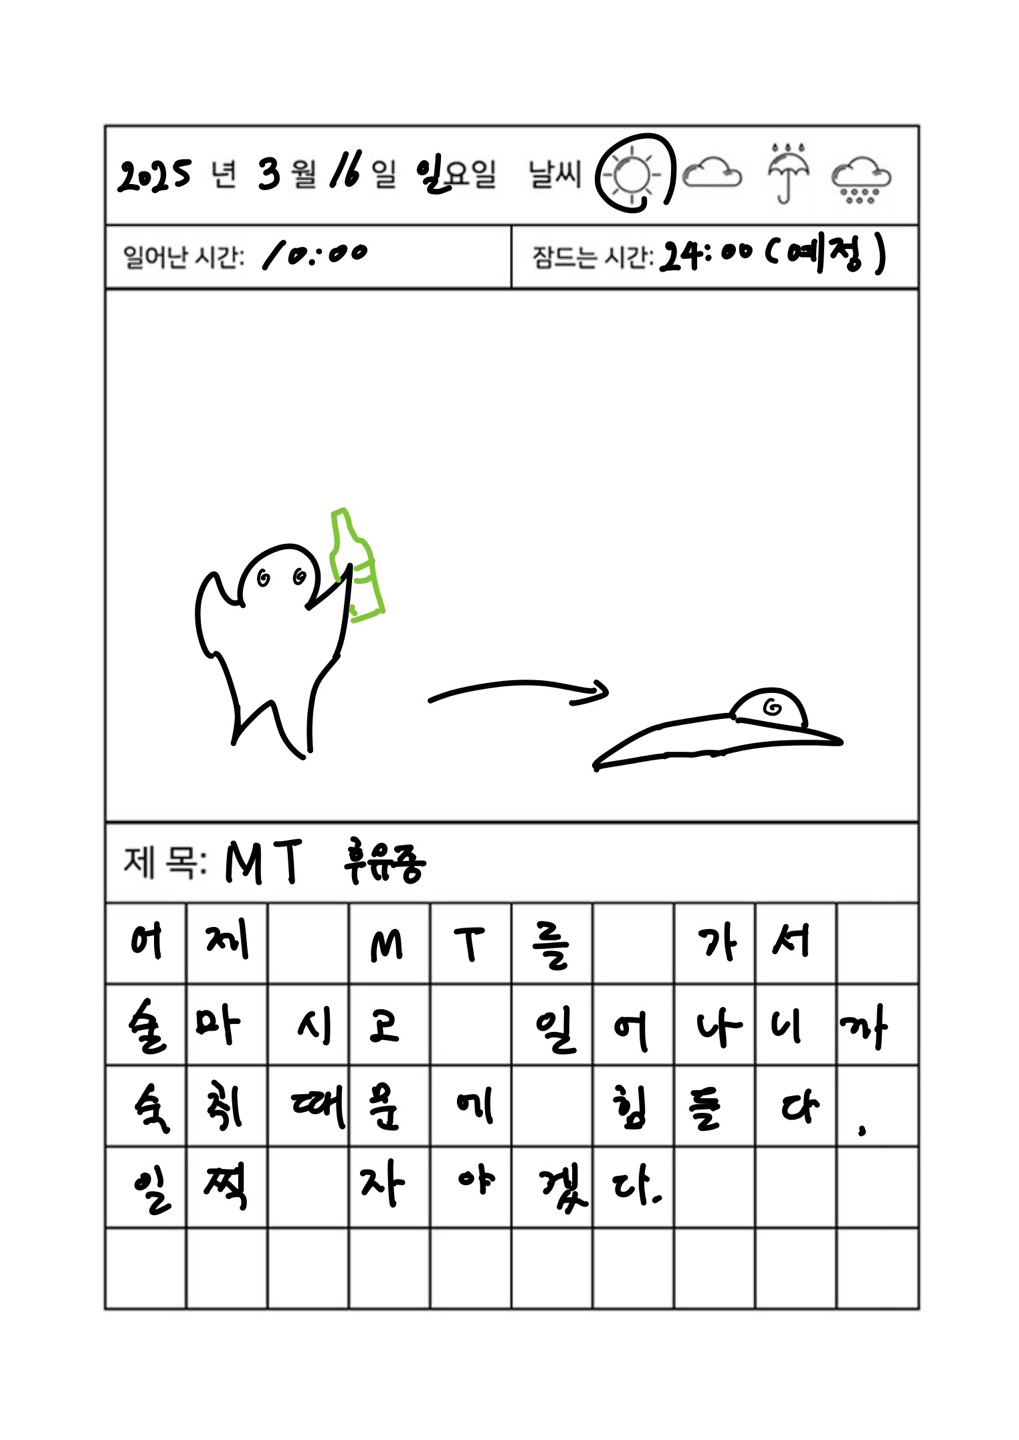 2025년 3월 16일 일요일 날씨
일어난 시간: 10:00 잠드는 시간: 24:00 (예정)
제 목: MT 후유증
어제 MT를 가서
술마시고 일어나니까
숙취때문에 힘들다.
일찍 자야겠다.